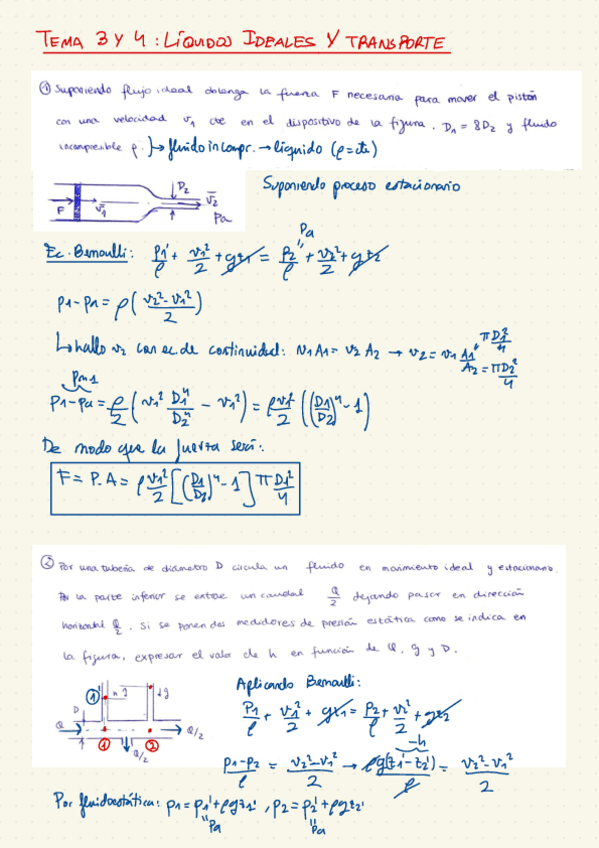 TEMA 3 Y 4: LÍQUIDOS IDEALES Y TRANSPORTE
① Suponiendo flujo ideal obtenga la fuerza F necesaria para mover el pistón
con una velocidad v₁ cte en el dispositivo de la figura. D₁ = 8D₂ y fluido
incompresible ρ. }→ fluido incompr. → líquido (ρ=cte)
Suponiendo proceso estacionario
F v₁ D₂ v₂ Pa
Ec. Bernoulli: P₁/ρ + v₁²/2 + gz₁ = P₂/ρ + v₂²/2 + gz₂
Pa
P₁-Pa = ρ((v₂²-v₁²)/2)
↳ hallo v₂ con ec. de continuidad: v₁A₁ = v₂A₂ → v₂ = v₁ A₁/A₂
πD₁²/4
= πD₂²/4
P₁-Pa = ρ/2 (v₁² D₁⁴/D₂⁴ - v₁²) = ρv₁²/2 ((D₁/D₂)⁴ - 1)
De modo que la fuerza será:
F = P·A = ρ v₁²/2 [(D₁/D₂)⁴ - 1] π D₁²/4
② Por una tubería de diámetro D circula un fluido en movimiento ideal y estacionario.
Por la parte inferior se extrae un caudal Q/2 dejando pasar en dirección
horizontal Q/2. Si se ponen dos medidores de presión estática como se indica en
la figura, expresar el valor de h en función de Q, g y D.
Aplicando Bernoulli:
①' h g ↓g
D
Q Q/2
① Q/2 ②
P₁/ρ + v₁²/2 + gz₁ = P₂/ρ + v₂²/2 + gz₂
-h
(P₁-P₂)/ρ = (v₂²-v₁²)/2 → ρg(z₁'-z₂')/ρ = (v₂²-v₁²)/2
Por fluidoestática: P₁ = P₁' + ρgz₁', P₂ = P₂' + ρgz₂'
Pa Pa